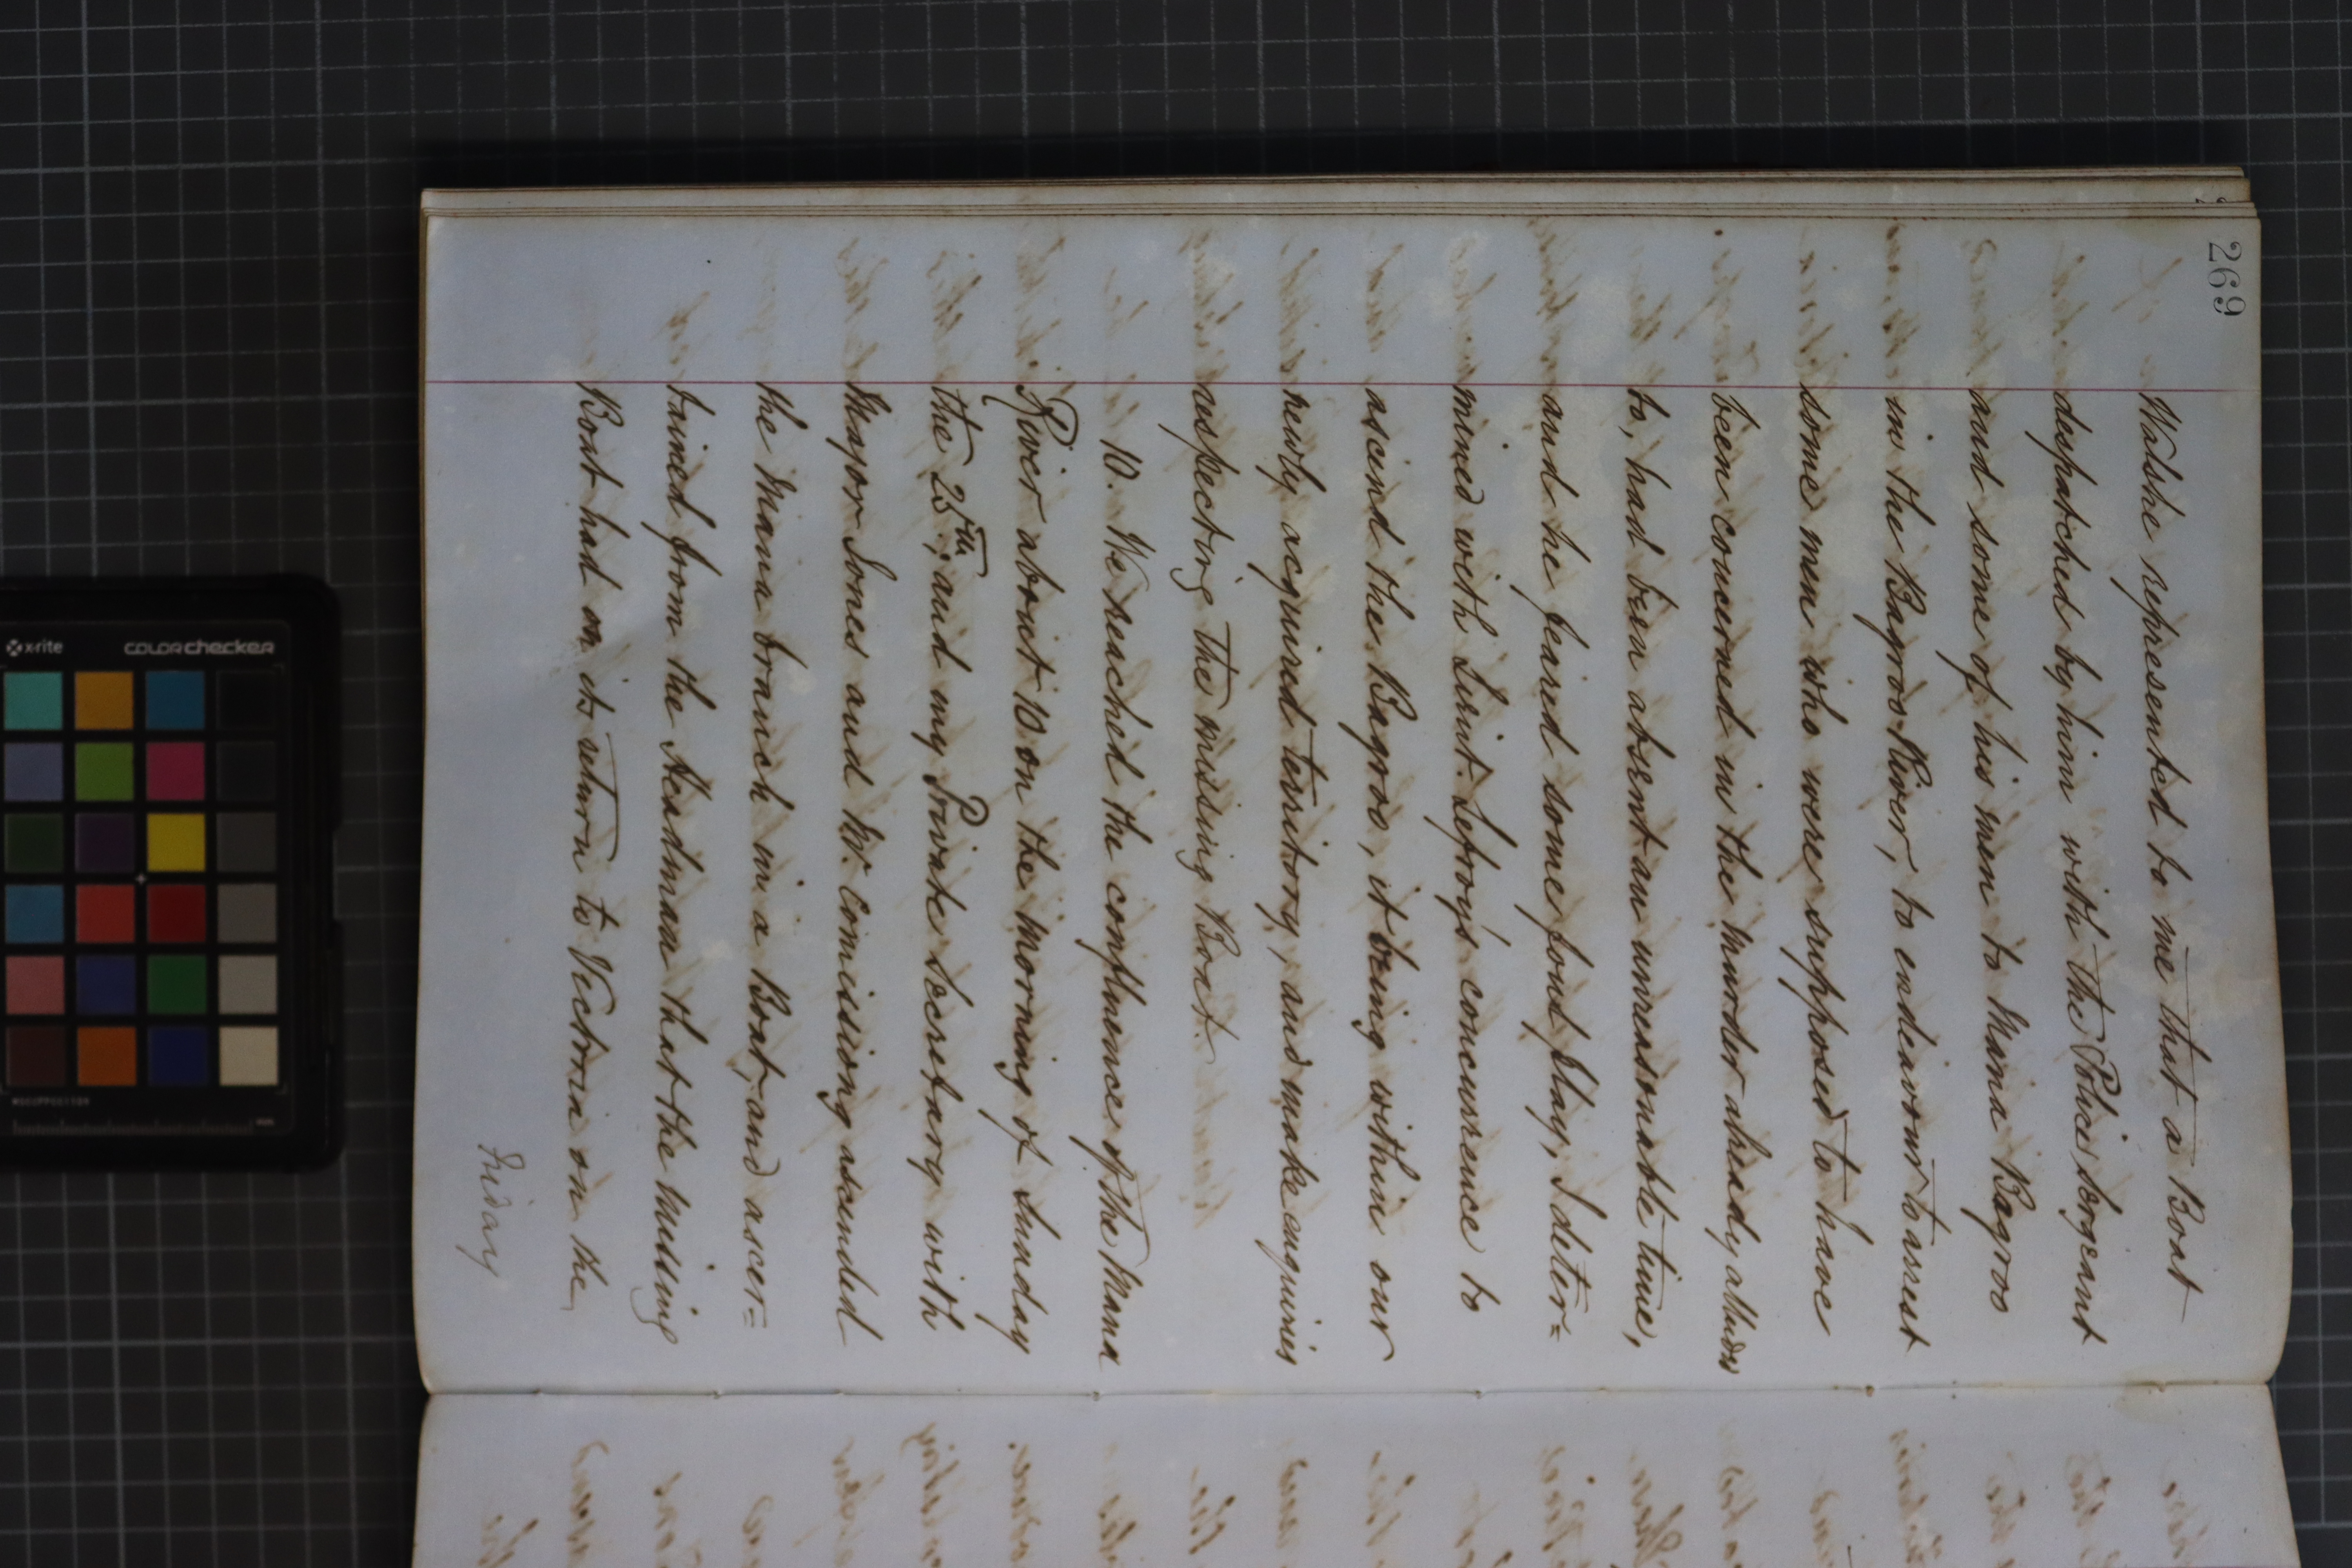 269
Walshe represented to me that a Boat
despatched by him with the Police Sergeant
and some of his men to Mana Bagroo
in the Bagroo River, to endeavour to arrest
some men who were supposed to have
been concerned in the murder already alluded
to, had been absent an unreasonable time,
and he feared some foul play, I deter=
mined with Lieut. Lefroy's concurrence to
ascend the Bagroo, it being within our
newly acquired territory, and make enquiries
respecting the missing Boat.
10. We reached the confluence of the Mana
River about 10 on the morning of Sunday
the 25th, and my Private Secretary with
Mayor Jones and Mr. Comissiong ascended
the Mana branch in a Boat, and ascer=
tained from the Headman that the missing
Boat had on its return to Victoria on the
Friday
x-rite
colorchecker